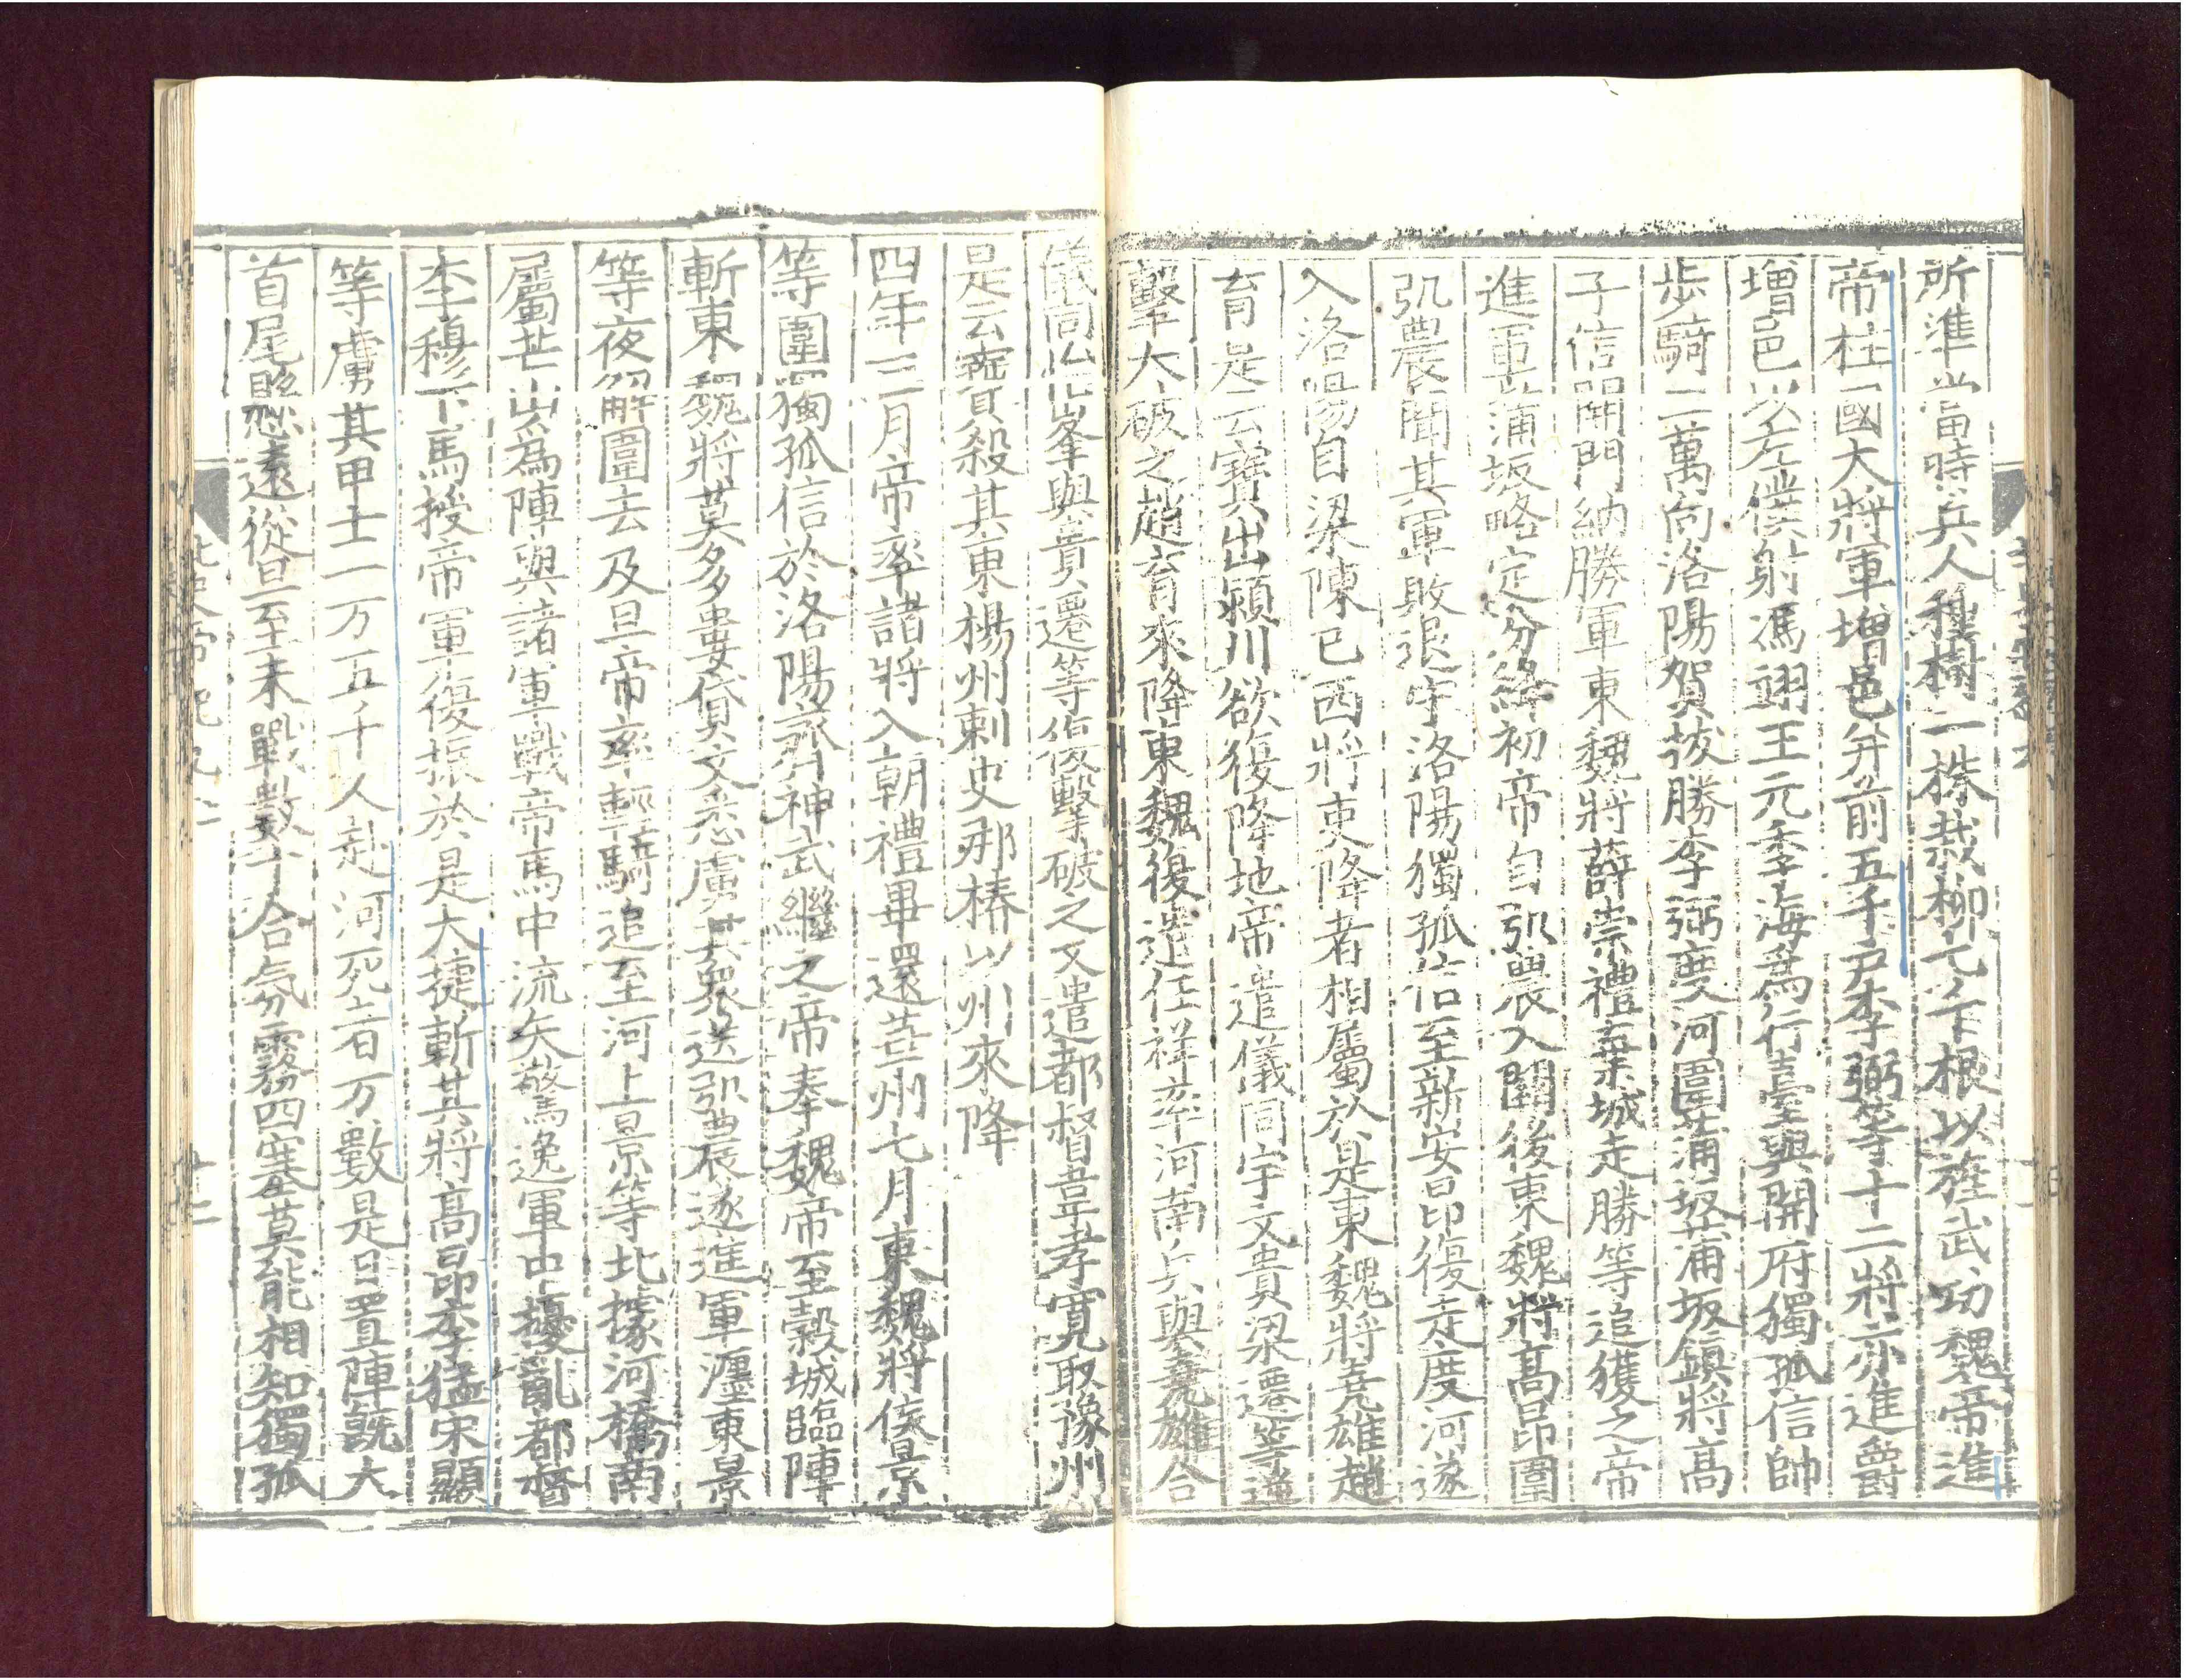 所準當時兵人種樹一株栽柳七千根以旌武功魏帝進
帝柱國大將軍增邑并前五千戶李弼等十二將亦進爵
增邑以左僕射馮翊王元季海為行臺與開府獨孤信帥
步騎二萬向洛陽賀拔勝李弼度河圍蒲坂蒲坂鎮將高
子信開門納勝軍東魏將薛崇禮棄城走勝等追獲之帝
進軍蒲坂略定汾絳初帝自弘農入關後東魏將高昂圍
弘農聞其軍敗退守洛陽獨孤信至新安昂復走度河遂
入洛陽自梁陳已西將吏降者相屬於是東魏將堯雄趙
育是云寶出潁川欲復降地帝遣儀同宇文貴梁遷等逆
擊大破之趙育來降東魏復遣任祥率河南兵與堯雄合
儀同怡峯與貴遷等復擊破之又遣都督韋孝寬取豫州
是云寶殺其東楊州刺史那椿以州來降
四年三月帝率諸將入朝禮畢還華州七月東魏將侯景
等圍獨孤信於洛陽齊神武繼之帝奉魏帝至穀城臨陣
斬東魏將莫多婁貸文悉虜其衆送弘農遂進軍瀍東景
等夜解圍去及旦帝率輕騎追至河上景等北據河橋南
屬芒山為陣與諸軍戰帝馬中流矢驚逸軍中擾亂都督
李穆下馬授帝軍復振於是大捷斬其將高昂李猛宋顯
等虜其甲士一万五千人赴河死者万數是日置陣既大
首尾懸遠從旦至未戰數十合氛霧四塞莫能相知獨孤